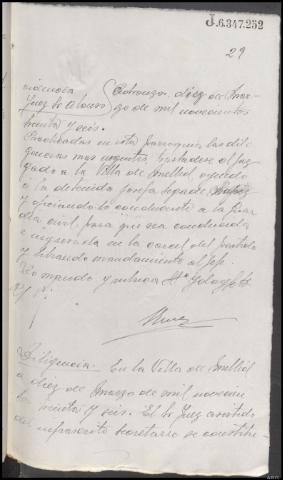 J.6.347.252
29
Providencia
Juez Sr. Alonso
diez de Mar-
zo de mil novecientos
treinta y seis.
Practicadas en esta parroquia las dili-
gencias mas urgentes, trasladese el Juz-
gado a la Villa de Mellid,
a la detenida Josefa
y oficiando lo conducente a la Guar-
dia civil para que sea conducida
e ingresada en la carcel del Partido
y librando mandamiento al Jefe.
Lo mandó y rubrica S.Sª doy fe.
Diligencia.- En la Villa de Mellid
a diez de Marzo de mil novecien
tos treinta y seis. El Sr. Juez asistido
del infrascrito secretario se constitu-